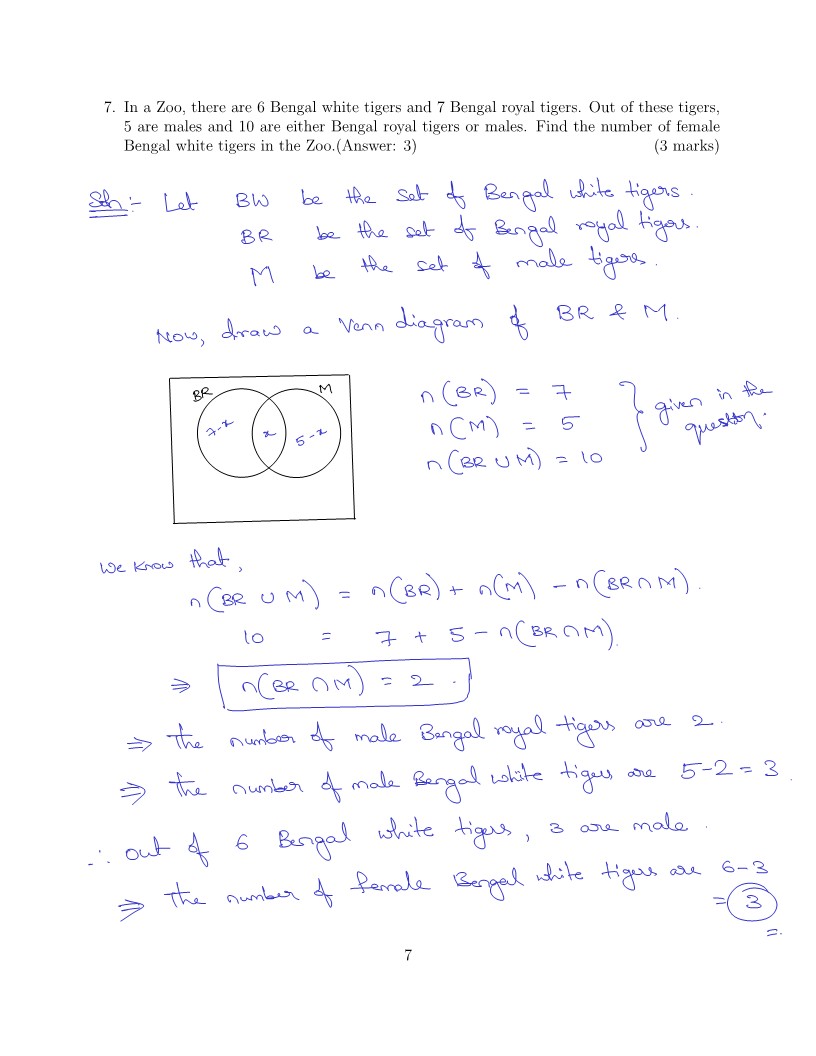 7. In a Zoo, there are 6 Bengal white tigers and 7 Bengal royal tigers. Out of these tigers,
5 are males and 10 are either Bengal royal tigers or males. Find the number of female
Bengal white tigers in the Zoo.(Answer: 3) (3 marks)
Soln:- Let BW be the set of Bengal white tigers.
BR be the set of Bengal royal tigers.
M be the set of male tigers.
Now, draw a Venn diagram of BR & M.
BR M
7-x x 5-x
n(BR) = 7
n(M) = 5
n(BR ∪ M) = 10
given in the
question.
We know that,
n(BR ∪ M) = n(BR) + n(M) - n(BR ∩ M).
10 = 7 + 5 - n(BR ∩ M).
⇒ n(BR ∩ M) = 2.
⇒ the number of male Bengal royal tigers are 2.
⇒ the number of male Bengal white tigers are 5-2 = 3.
∴ out of 6 Bengal white tigers, 3 are male.
⇒ the number of female Bengal white tigers are 6-3
= 3
7